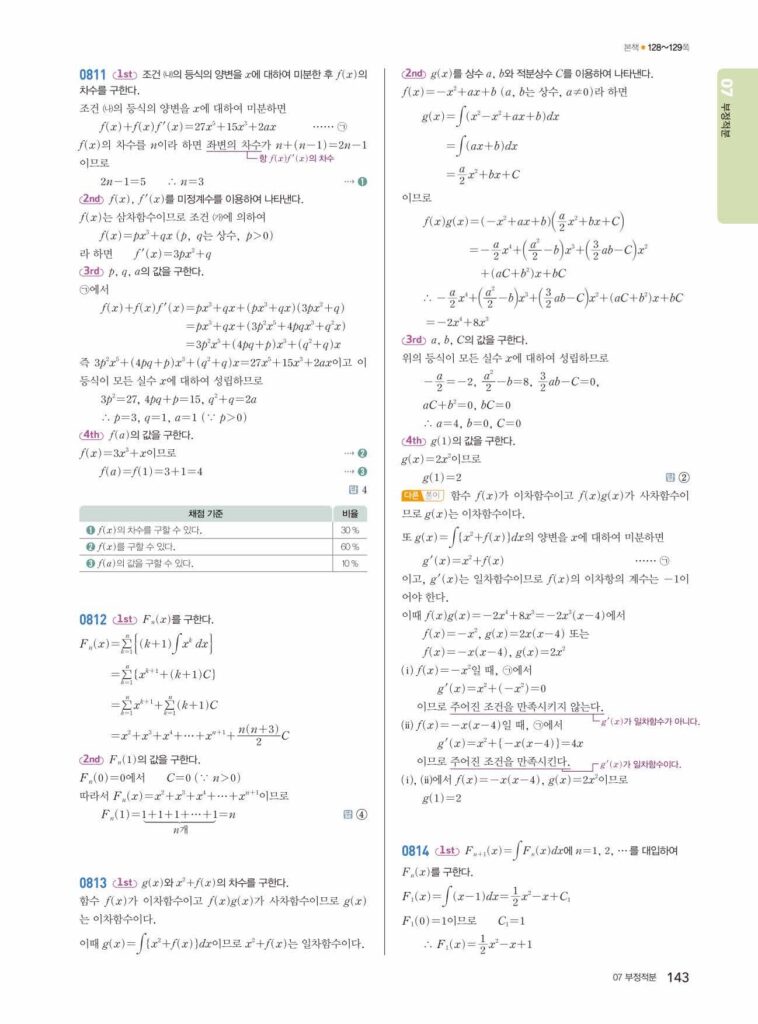 본책 • 128~129쪽
07 부정적분
0811 1st 조건 ㈏의 등식의 양변을 x에 대하여 미분한 후 f(x)의
차수를 구한다.
조건 ㈏의 등식의 양변을 x에 대하여 미분하면
f(x)+f(x)f'(x)=27x⁵+15x³+2ax ⋯⋯ ㉠
f(x)의 차수를 n이라 하면 좌변의 차수가 n+(n-1)=2n-1
이므로 항 f(x)f'(x)의 차수
2n-1=5 ∴ n=3 ⋯ ❶
2nd f(x), f'(x)를 미정계수를 이용하여 나타낸다.
f(x)는 삼차함수이므로 조건 ㈎에 의하여
f(x)=px³+qx (p, q는 상수, p>0)
라 하면 f'(x)=3px²+q
3rd p, q, a의 값을 구한다.
㉠에서
f(x)+f(x)f'(x)=px³+qx+(px³+qx)(3px²+q)
=px³+qx+(3p²x⁵+4pqx³+q²x)
=3p²x⁵+(4pq+p)x³+(q²+q)x
즉 3p²x⁵+(4pq+p)x³+(q²+q)x=27x⁵+15x³+2ax이고 이
등식이 모든 실수 x에 대하여 성립하므로
3p²=27, 4pq+p=15, q²+q=2a
∴ p=3, q=1, a=1 (∵ p>0)
4th f(a)의 값을 구한다.
f(x)=3x³+x이므로 ⋯ ❷
f(a)=f(1)=3+1=4 ⋯ ❸
답 4
채점 기준 비율
❶ f(x)의 차수를 구할 수 있다. 30%
❷ f(x)를 구할 수 있다. 60%
❸ f(a)의 값을 구할 수 있다. 10%
0812 1st Fₙ(x)를 구한다.
Fₙ(x)=∑ₖ₌₁ⁿ{(k+1)∫xᵏ dx}
=∑ₖ₌₁ⁿ{xᵏ⁺¹+(k+1)C}
=∑ₖ₌₁ⁿxᵏ⁺¹+∑ₖ₌₁ⁿ(k+1)C
=x²+x³+x⁴+⋯+xⁿ⁺¹+n(n+3)/2 C
2nd Fₙ(1)의 값을 구한다.
Fₙ(0)=0에서 C=0 (∵ n>0)
따라서 Fₙ(x)=x²+x³+x⁴+⋯+xⁿ⁺¹이므로
Fₙ(1)=1+1+1+⋯+1=n 답 ④
n개
0813 1st g(x)와 x²+f(x)의 차수를 구한다.
함수 f(x)가 이차함수이고 f(x)g(x)가 사차함수이므로 g(x)
는 이차함수이다.
이때 g(x)=∫{x²+f(x)}dx이므로 x²+f(x)는 일차함수이다.
2nd g(x)를 상수 a, b와 적분상수 C를 이용하여 나타낸다.
f(x)=-x²+ax+b (a, b는 상수, a≠0)라 하면
g(x)=∫(x²-x²+ax+b)dx
=∫(ax+b)dx
=a/2 x²+bx+C
이므로
f(x)g(x)=(-x²+ax+b)(a/2 x²+bx+C)
=-a/2 x⁴+(a²/2-b)x³+(3/2 ab-C)x²
+(aC+b²)x+bC
∴ -a/2 x⁴+(a²/2-b)x³+(3/2 ab-C)x²+(aC+b²)x+bC
=-2x⁴+8x³
3rd a, b, C의 값을 구한다.
위의 등식이 모든 실수 x에 대하여 성립하므로
-a/2=-2, a²/2-b=8, 3/2 ab-C=0,
aC+b²=0, bC=0
∴ a=4, b=0, C=0
4th g(1)의 값을 구한다.
g(x)=2x²이므로
g(1)=2 답 ②
다른 풀이 함수 f(x)가 이차함수이고 f(x)g(x)가 사차함수이
므로 g(x)는 이차함수이다.
또 g(x)=∫{x²+f(x)}dx의 양변을 x에 대하여 미분하면
g'(x)=x²+f(x) ⋯⋯ ㉠
이고, g'(x)는 일차함수이므로 f(x)의 이차항의 계수는 -1이
어야 한다.
이때 f(x)g(x)=-2x⁴+8x³=-2x³(x-4)에서
f(x)=-x², g(x)=2x(x-4) 또는
f(x)=-x(x-4), g(x)=2x²
(i) f(x)=-x²일 때, ㉠에서
g'(x)=x²+(-x²)=0
이므로 주어진 조건을 만족시키지 않는다.
g'(x)가 일차함수가 아니다.
(ii) f(x)=-x(x-4)일 때, ㉠에서
g'(x)=x²+{-x(x-4)}=4x
이므로 주어진 조건을 만족시킨다. g'(x)가 일차함수이다.
(i), (ii)에서 f(x)=-x(x-4), g(x)=2x²이므로
g(1)=2
0814 1st Fₙ₊₁(x)=∫Fₙ(x)dx에 n=1, 2, ⋯를 대입하여
Fₙ(x)를 구한다.
F₁(x)=∫(x-1)dx=1/2 x²-x+C₁
F₁(0)=1이므로 C₁=1
∴ F₁(x)=1/2 x²-x+1
07 부정적분 143